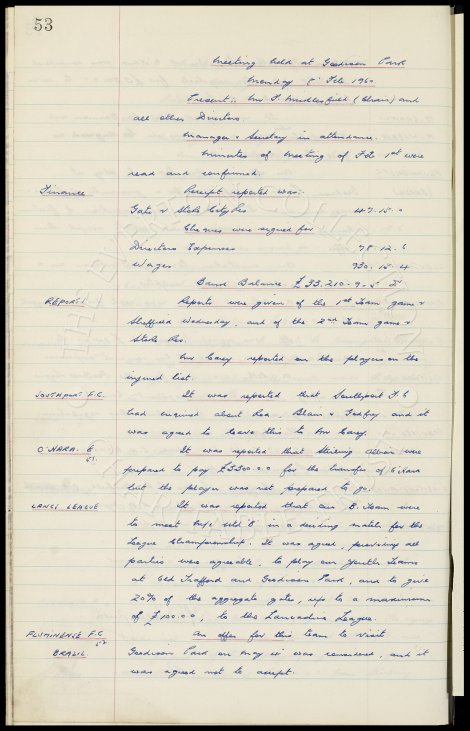 53
Meeting held at Goodison Park
Monday 8th Feb 1960.
Present:- Mr F. Micklesfield (Chair) and
all other Directors.
Manager & Secretary in attendance.
Minutes of Meeting of Feb 1st were
read and confirmed.
Finance Receipt reported was:-
Gate v Stoke City Res 47-15-0
Cheques were signed for
Directors Expenses 78-12-6
Wages 930-15-4
Bank Balance £33,210-9-5
REPORTS Reports were given of the 1st Team game v
Sheffield Wednesday, and of the 2nd Team game v
Stoke Res.
Mr Carey reported on the players on the
injured list.
SOUTHPORT F.C. It was reported that Southport F.C
had enquired about Rea, Blain & Godfrey and it
was agreed to leave this to Mr Carey.
O'HARA. E It was reported that Stirling Albion were
prepared to pay £3300.0.0 for the transfer of O'Hara
but the player was not prepared to go.
LANCS LEAGUE It was reported that our B. Team were
to meet M/c Utd 'B' in a deciding match for the
League Championship. It was agreed, providing all
parties were agreeable, to play our Youth Teams
at Old Trafford and Goodison Park, and to give
20% of the aggregate gates, up to a maximum
of £100.0.0, to the Lancashire League.
FLUMINENSE F.C An offer for this team to visit
BRAZIL. Goodison Park on May was considered, and it
was agreed not to accept.